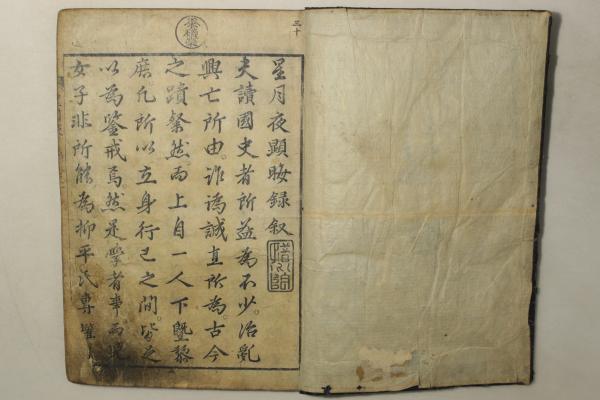 三十
星月夜顯晦録叙
夫讀國史者所益為不少。治亂
興亡所由。誰為誠直所為。古今
之蹟粲然。而上自一人下暨黎
庶凡所以立身行己之間。皆足
以為鑒戒焉然是學者事而
女子非所能為抑平氏專